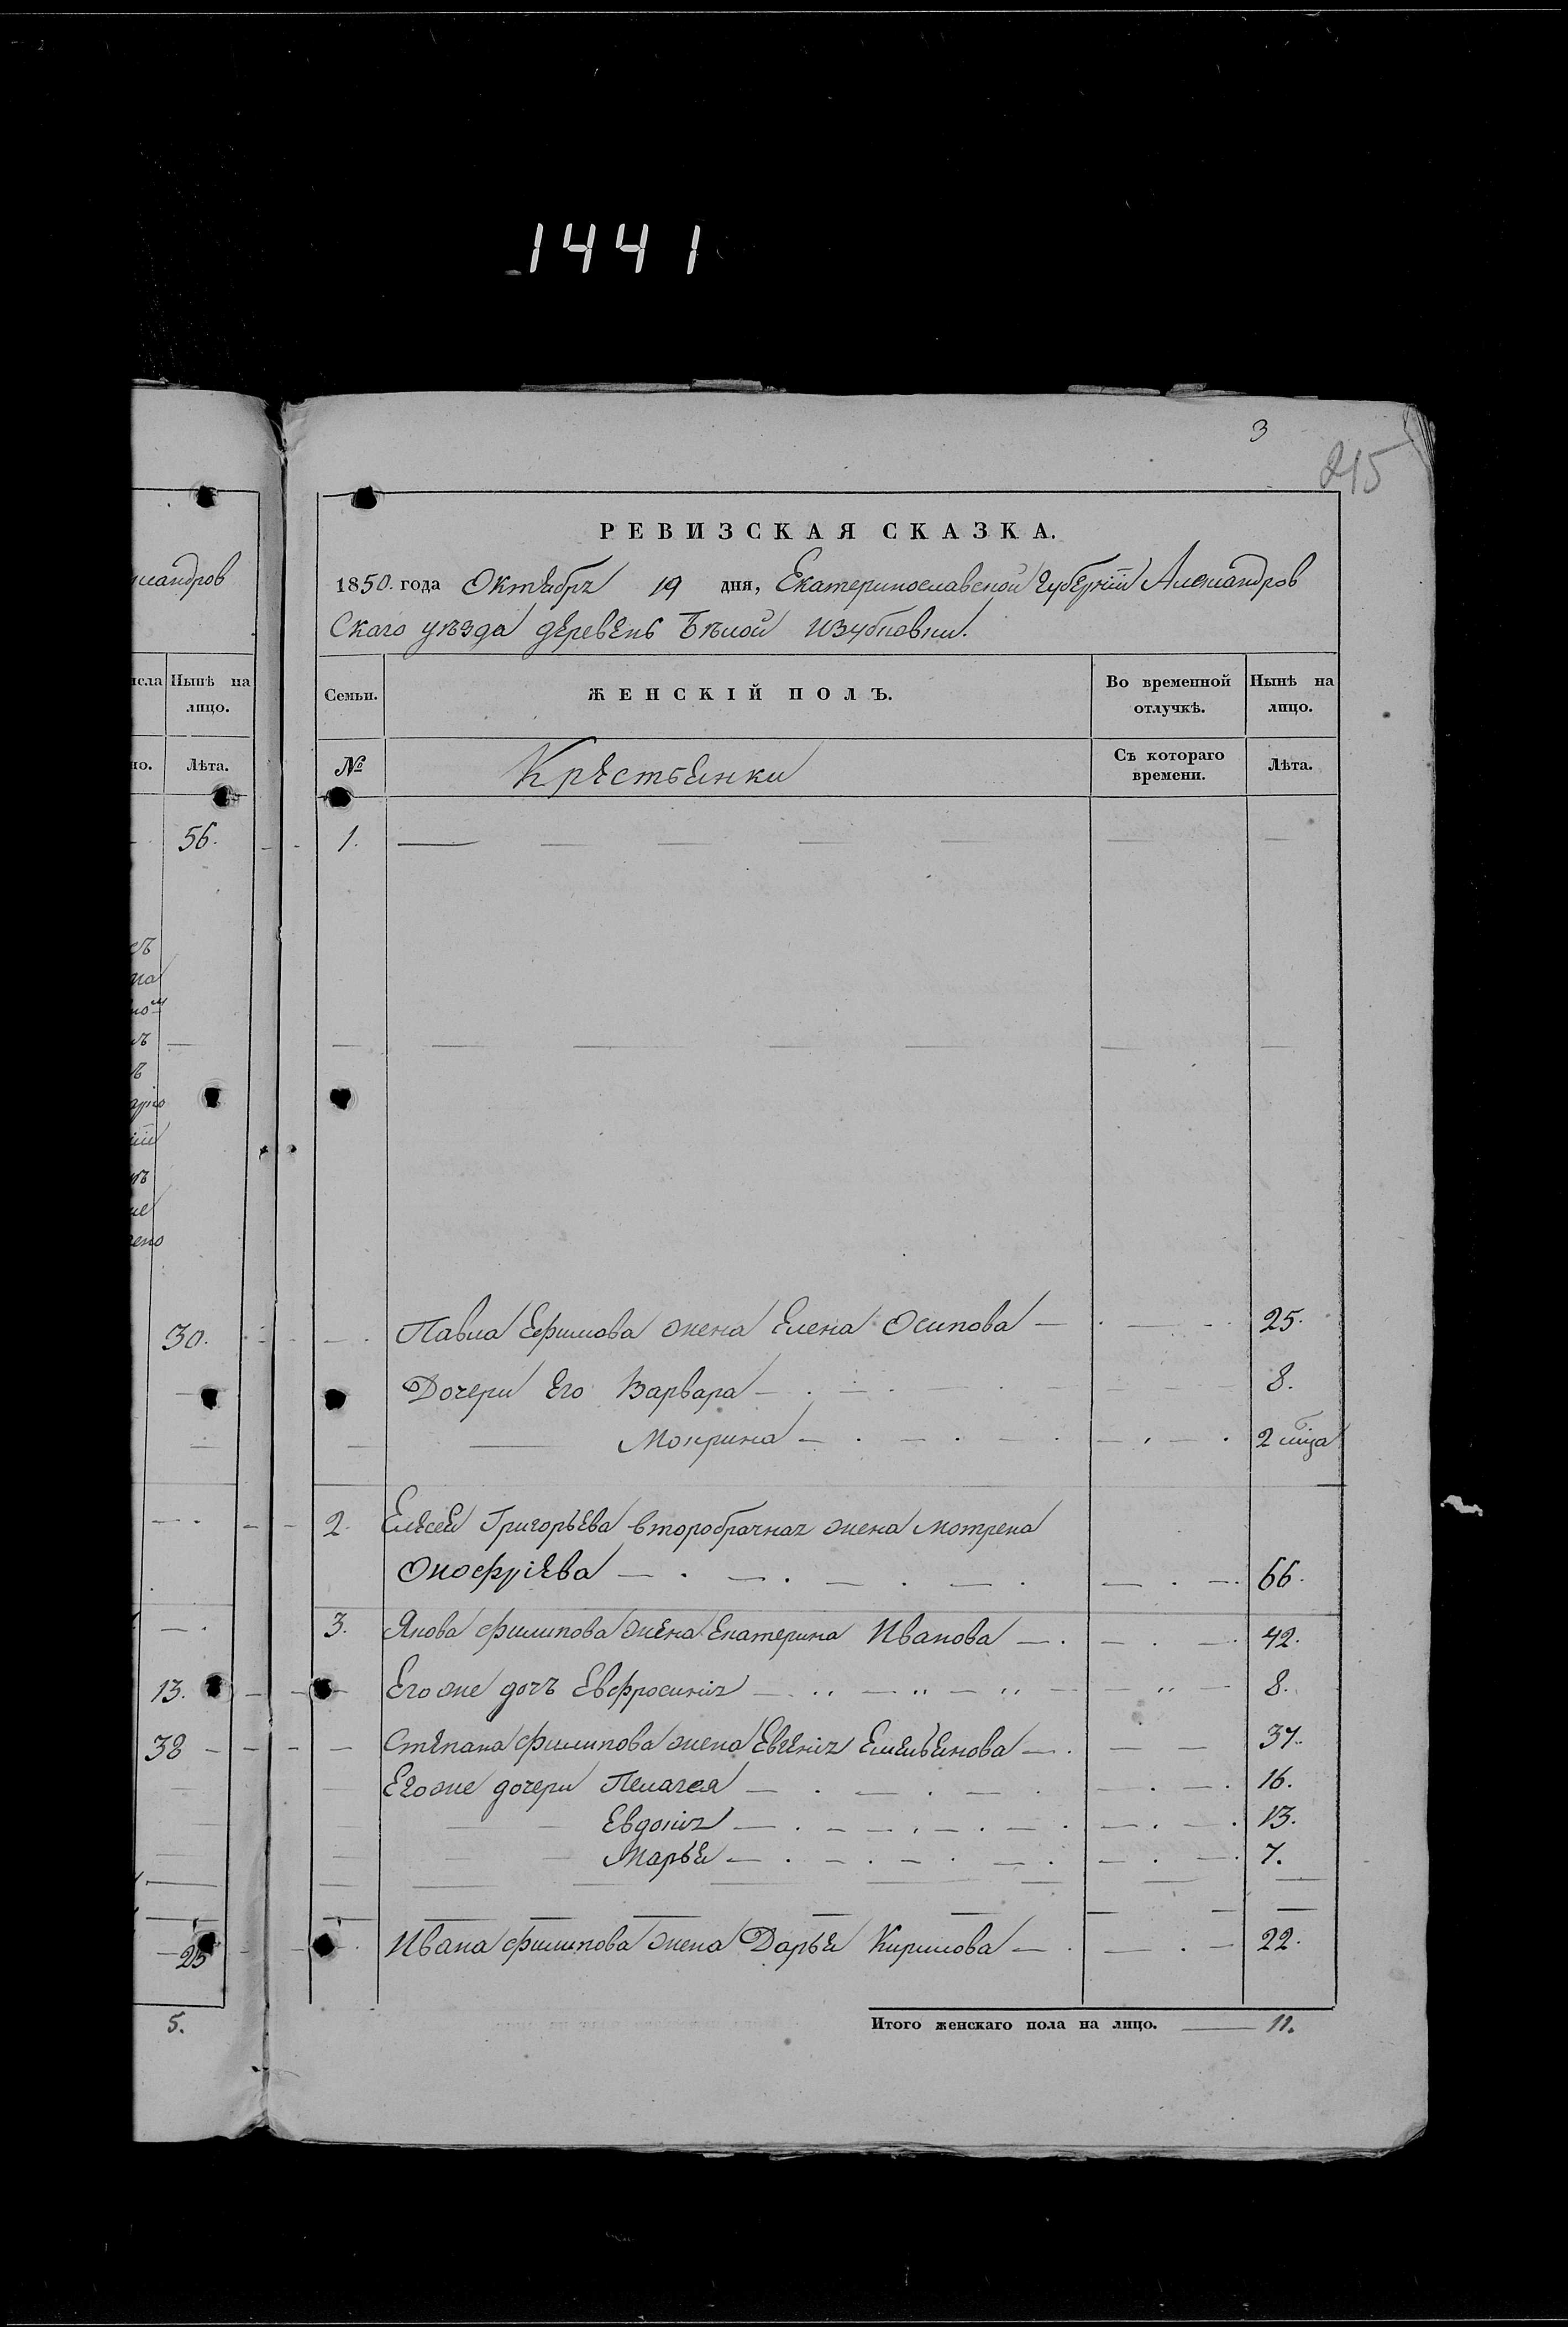 1441
3
215
РЕВИЗСКАЯ СКАЗКА.
1850. года Октября 19 дня, Екатеринославской Губернии Александров
Скаго уѣзда деревень Бѣлой
Семьи. ЖЕНСКІЙ ПОЛЪ. Во временной отлучкѣ. Нынѣ на лицо.
№ Крестьянки Съ котораго времени. Лѣта.
1.
Павла Ефимова жена Елена Осипова 25.
Дочери Его Варвара 8.
Мокрина 2 мца
2. Елисея Григорьева второбрачная жена Мотрена
Онофріева 66.
3. Якова Филипова жена Екатерина Иванова 42.
Его же дочь Евфросинія 8.
Степана Филипова жена Евгенія Емельянова 37.
Его же дочери Пелагея 16.
Евдокія 13.
Марья 7.
Ивана Филипова жена Дарья Кирилова 22.
Итого женскаго пола на лицо. 11.
Нынѣ на
лицо.
Лѣта.
56.
30.
13.
38
25
5.